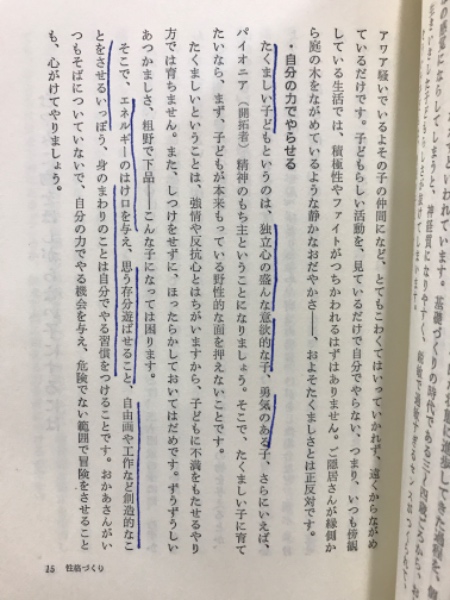 アワア騒いでいるよその子の仲間になど、とてもこわくてはいっていかれず、遠くからながめ
ているだけです。子どもらしい活動を、見ているだけで自分でやらない、つまり、いつも傍観
している生活では、積極性やファイトがつちかわれるはずはありません。ご隠居さんが縁側か
ら庭の木をながめているような静かなおだやかさ――、およそたくましさとは正反対です。
・自分の力でやらせる
たくましい子どもというのは、独立心の盛んな意欲的な子、勇気のある子、さらにいえば、
パイオニア(開拓者)精神のもち主ということになりましょう。そこで、たくましい子に育て
たいなら、まず、子どもが本来もっている野性的な面を押えないことです。
たくましいということは、強情や反抗心とはちがいますから、子どもに不満をもたせるやり
方では育ちません。また、しつけをせずに、ほったらかしておいてはだめです。ずうずうしい
あつかましさ、粗野で下品――こんな子になっては困ります。
そこで、エネルギーのはけ口を与え、思う存分遊ばせること、自由画や工作など創造的なこ
とをさせるいっぽう、身のまわりのことは自分でやる習慣をつけることです。おかあさんがい
つもそばについていないで、自分の力でやる機会を与え、危険でない範囲で冒険をさせること
も、心がけてやりましょう。
15 性格づくり